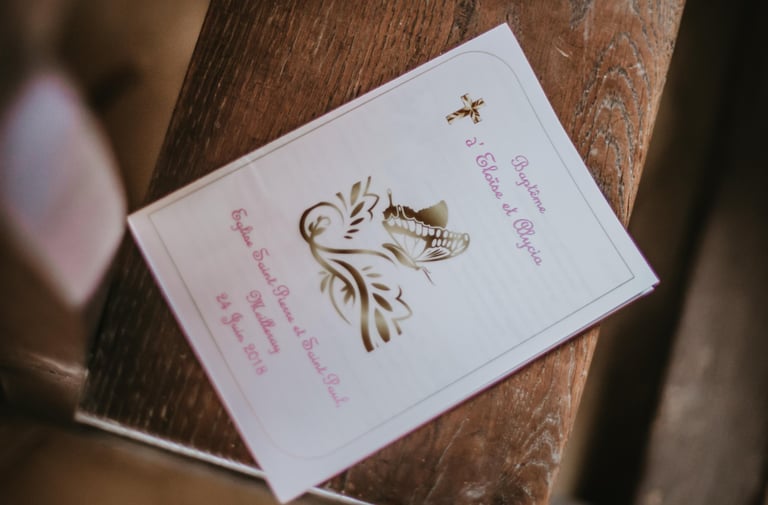 Baptême
à Eloïse et Allycia
Eglise Saint Pierre et Saint Paul,
Maillenay
24 Juin 2018